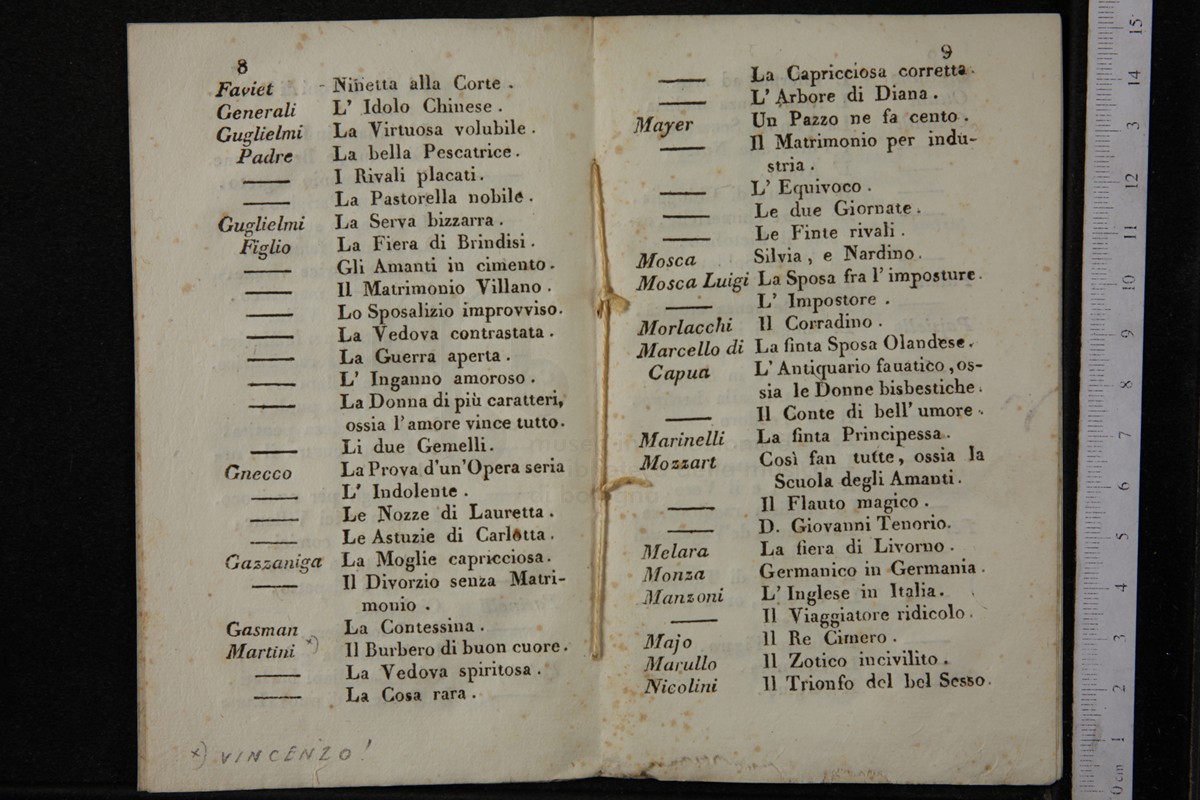 8
Faviet - Ninetta alla Corte .
Generali L' Idolo Chinese .
Guglielmi La Virtuosa volubile .
Padre La bella Pescatrice .
—— I Rivali placati.
—— La Pastorella nobile .
Guglielmi La Serva bizzarra .
Figlio La Fiera di Brindisi .
—— Gli Amanti in cimento .
—— Il Matrimonio Villano .
—— Lo Sposalizio improvviso.
—— La Vedova contrastata .
—— La Guerra aperta .
—— L' Inganno amoroso .
—— La Donna di più caratteri,
ossia l'amore vince tutto.
—— Li due Gemelli .
Gnecco La Prova d'un'Opera seria
—— L' Indolente .
—— Le Nozze di Lauretta .
—— Le Astuzie di Carlotta .
Gazzaniga La Moglie capricciosa .
—— Il Divorzio senza Matri-
monio .
Gasman La Contessina .
Martini *) Il Burbero di buon cuore .
—— La Vedova spiritosa .
—— La Cosa rara .
*) VINCENZO!
9
—— La Capricciosa corretta .
—— L' Arbore di Diana .
Mayer Un Pazzo ne fa cento .
—— Il Matrimonio per indu-
stria .
—— L' Equivoco .
—— Le due Giornate .
—— Le Finte rivali .
Mosca Silvia , e Nardino .
Mosca Luigi La Sposa fra l' imposture .
—— L' Impostore .
Morlacchi Il Corradino .
Marcello di La finta Sposa Olandese .
Capua L' Antiquario fauatico , os-
sia le Donne bisbestiche .
—— Il Conte di bell' umore .
Marinelli La finta Principessa .
Mozzart Così fan tutte , ossia la
Scuola degli Amanti .
—— Il Flauto magico .
—— D. Giovanni Tenorio.
Melara La fiera di Livorno .
Monza Germanico in Germania .
Manzoni L' Inglese in Italia .
—— Il Viaggiatore ridicolo .
Majo Il Re Cimero .
Marullo Il Zotico incivilito .
Nicolini Il Trionfo del bel Sesso .
15
14
3
12
11
10
9
8
7
6
5
4
3
2
1
0 cm